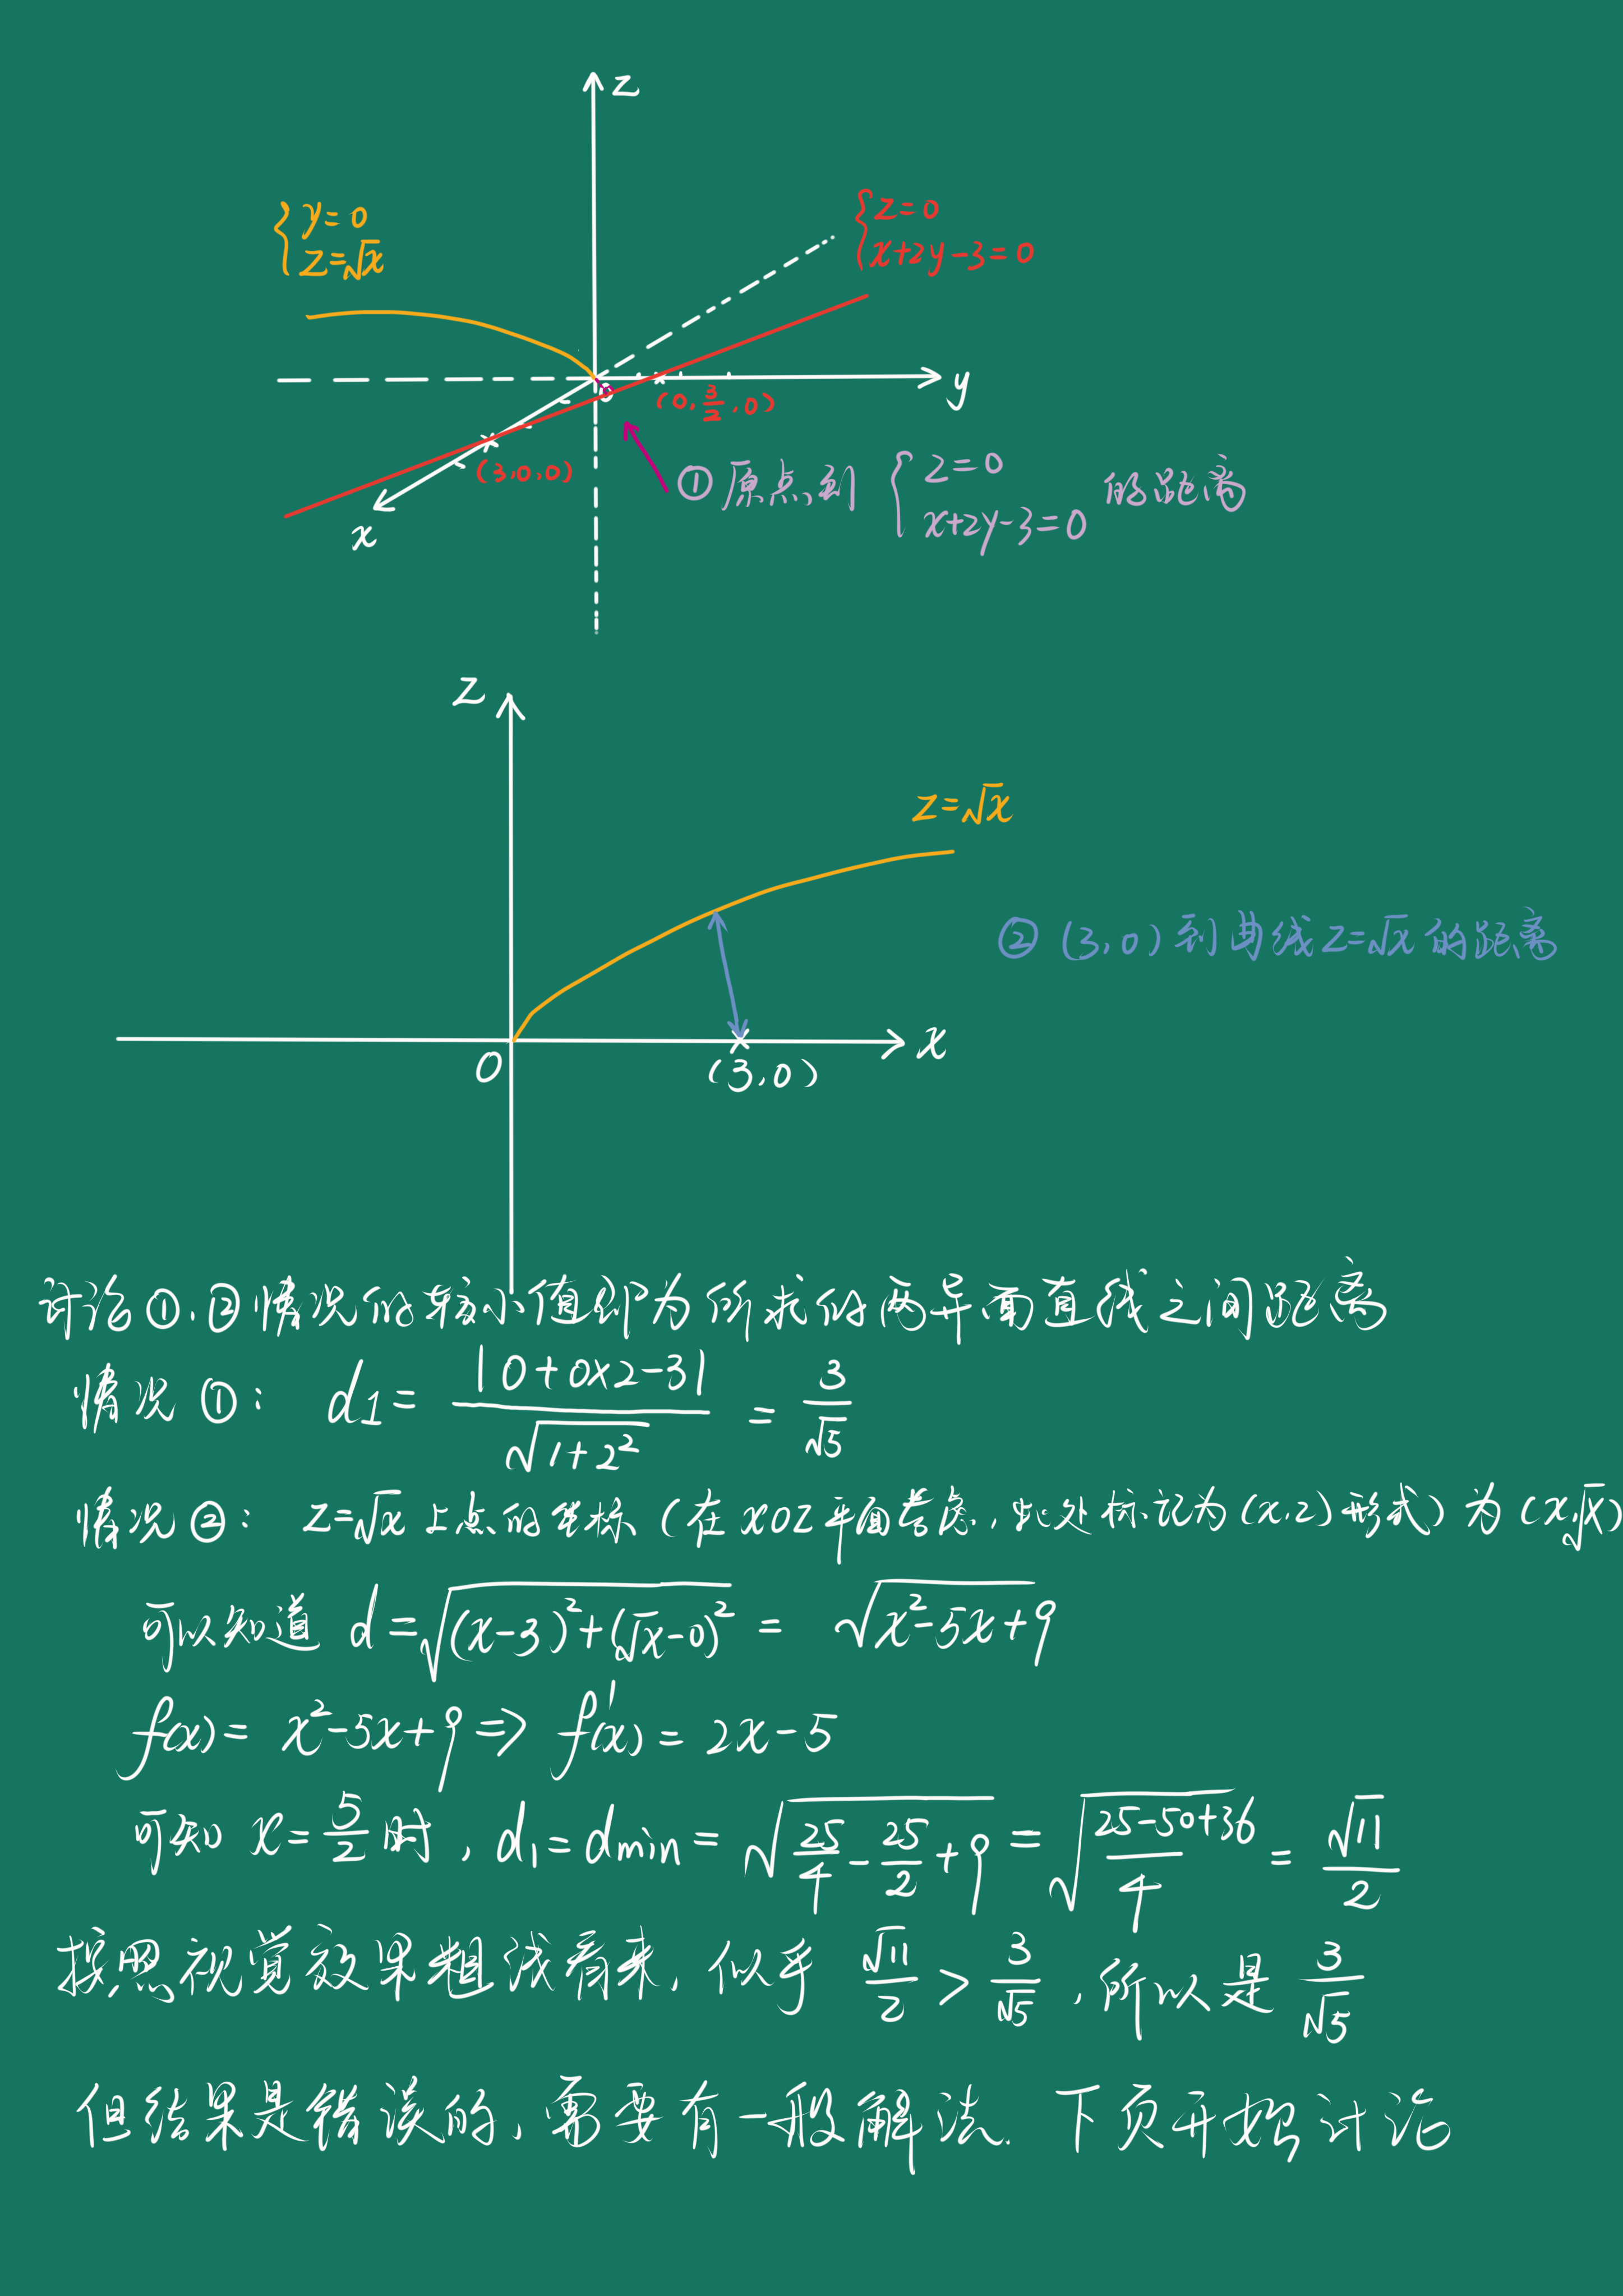 z
{y=0
z=√x
{z=0
x+2y-3=0
y
(0,3/2,0)
(3,0,0)
x
①原点到{z=0 x+2y-3=0 的距离
z
z=√x
②(3,0)到曲线z=√x的距离
x
O
(3,0)
讨论①.②情况的较小值即为所求的两异面直线之间距离
情况①: d1=|0+0×2-3|/√(1+2²)=3/√5
情况②: z=√x上点的坐标(在xOz平面考虑,此处标记为(x,z)形式)为(x,√x)
可以知道 d=√((x-3)²+(√x-0)²)=√(x²-5x+9)
f(x)=x²-5x+9⇒f'(x)=2x-5
可知 x=5/2时,d₁=dmin=√(25/4-25/2+9)=√((25-50+36)/4)=√11/2
按照视觉效果粗浅看来,似乎 √11/2>3/√5,所以是3/√5
但结果是错误的,需要有一般解法.下页开始讨论